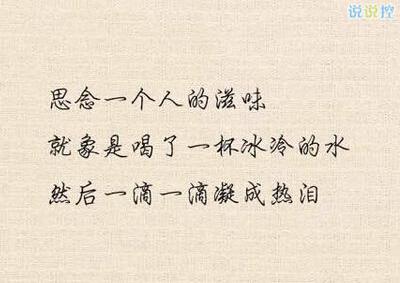 说说控
思念一个人的滋味
就象是喝了一杯冰冷的水
然后一滴一滴凝成热泪